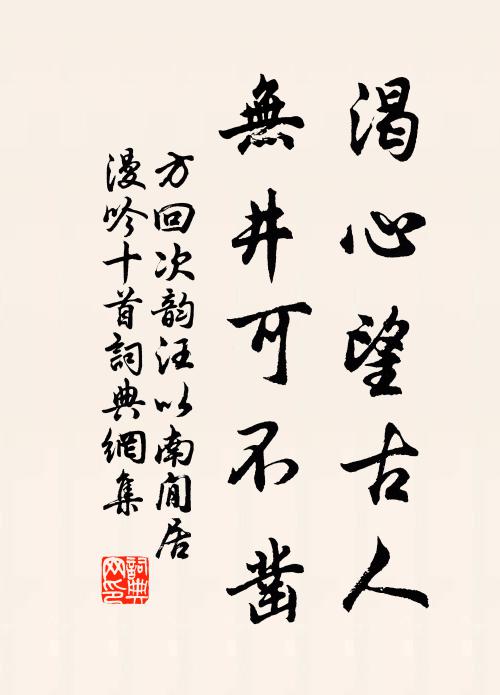 渴心望古人
無井可不凿
方回次韵汪以南閒居
漫吟十首詞典網集
詞典网印